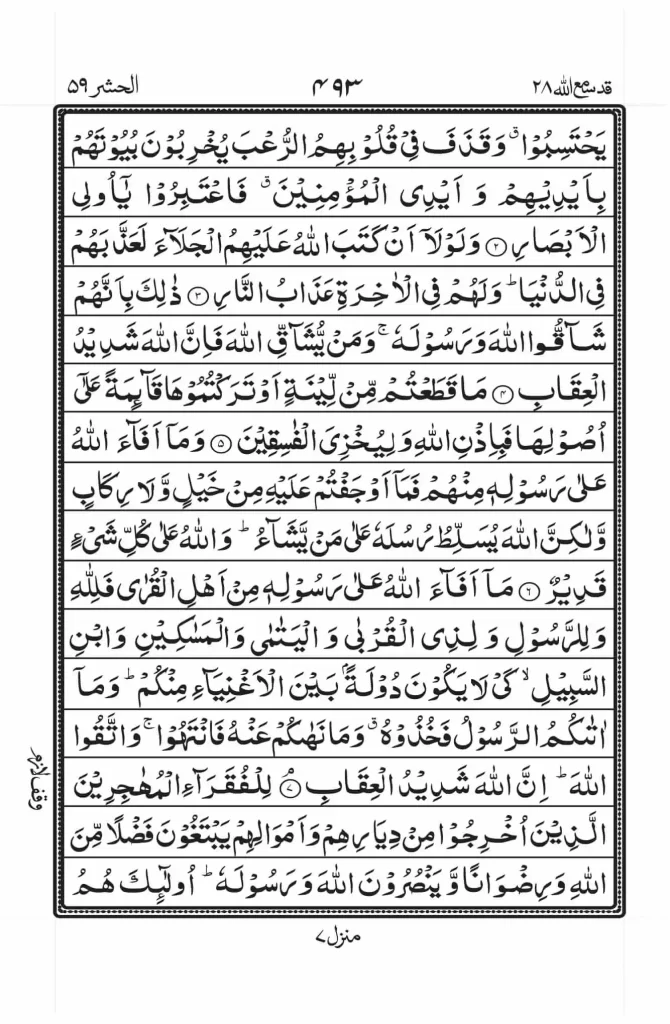 قد سمع الله ۲۸ ۴۹۳ الحشر ۵۹
يَحۡتَسِبُوۡا ۚ وَقَذَفَ فِىۡ قُلُوۡبِهِمُ الرُّعۡبَ يُخۡرِبُوۡنَ بُيُوۡتَهُمۡ
بِاَيۡدِيۡهِمۡ وَ اَيۡدِى الۡمُؤۡمِنِيۡنَ ۚ فَاعۡتَبِرُوۡا يٰۤاُولِى
الۡاَبۡصَارِ ﴿۲﴾ وَلَوۡلَاۤ اَنۡ كَتَبَ اللّٰهُ عَلَيۡهِمُ الۡجَلَآءَ لَعَذَّبَهُمۡ
فِى الدُّنۡيَا ؕ وَلَهُمۡ فِى الۡاٰخِرَةِ عَذَابُ النَّارِ ﴿۳﴾ ذٰلِكَ بِاَنَّهُمۡ
شَآقُّوا اللّٰهَ وَرَسُوۡلَهٗ ۚ وَمَنۡ يُّشَآقِّ اللّٰهَ فَاِنَّ اللّٰهَ شَدِيۡدُ
الۡعِقَابِ ﴿۴﴾ مَا قَطَعۡتُمۡ مِّنۡ لِّيۡنَةٍ اَوۡ تَرَكۡتُمُوۡهَا قَآٮِٕمَةً عَلٰٓى
اُصُوۡلِهَا فَبِاِذۡنِ اللّٰهِ وَلِيُخۡزِىَ الۡفٰسِقِيۡنَ ﴿۵﴾ وَمَاۤ اَفَآءَ اللّٰهُ
عَلٰى رَسُوۡلِهٖ مِنۡهُمۡ فَمَاۤ اَوۡجَفۡتُمۡ عَلَيۡهِ مِنۡ خَيۡلٍ وَّلَا رِكَابٍ
وَّلٰكِنَّ اللّٰهَ يُسَلِّطُ رُسُلَهٗ عَلٰى مَنۡ يَّشَآءُ ؕ وَاللّٰهُ عَلٰى كُلِّ شَىۡءٍ
قَدِيۡرٌ ﴿۶﴾ مَاۤ اَفَآءَ اللّٰهُ عَلٰى رَسُوۡلِهٖ مِنۡ اَهۡلِ الۡقُرٰى فَلِلّٰهِ
وَلِلرَّسُوۡلِ وَ لِذِى الۡقُرۡبٰى وَ الۡيَتٰمٰى وَالۡمَسٰكِيۡنِ وَابۡنِ
السَّبِيۡلِ ۙ كَىۡ لَا يَكُوۡنَ دُوۡلَةًۢ بَيۡنَ الۡاَغۡنِيَآءِ مِنۡكُمۡ ؕ وَمَاۤ
اٰتٰٮكُمُ الرَّسُوۡلُ فَخُذُوۡهُ ۚ وَمَا نَهٰٮكُمۡ عَنۡهُ فَانۡتَهُوۡا ۚ وَاتَّقُوا
اللّٰهَ ؕ اِنَّ اللّٰهَ شَدِيۡدُ الۡعِقَابِ ﴿۷﴾ لِلۡفُقَرَآءِ الۡمُهٰجِرِيۡنَ
الَّذِيۡنَ اُخۡرِجُوۡا مِنۡ دِيَارِهِمۡ وَاَمۡوَالِهِمۡ يَبۡتَغُوۡنَ فَضۡلًا مِّنَ
اللّٰهِ وَرِضۡوَانًا وَّيَنۡصُرُوۡنَ اللّٰهَ وَرَسُوۡلَهٗ ؕ اُولٰٓٮِٕكَ هُمُ
وقف لازم
منزل ۷